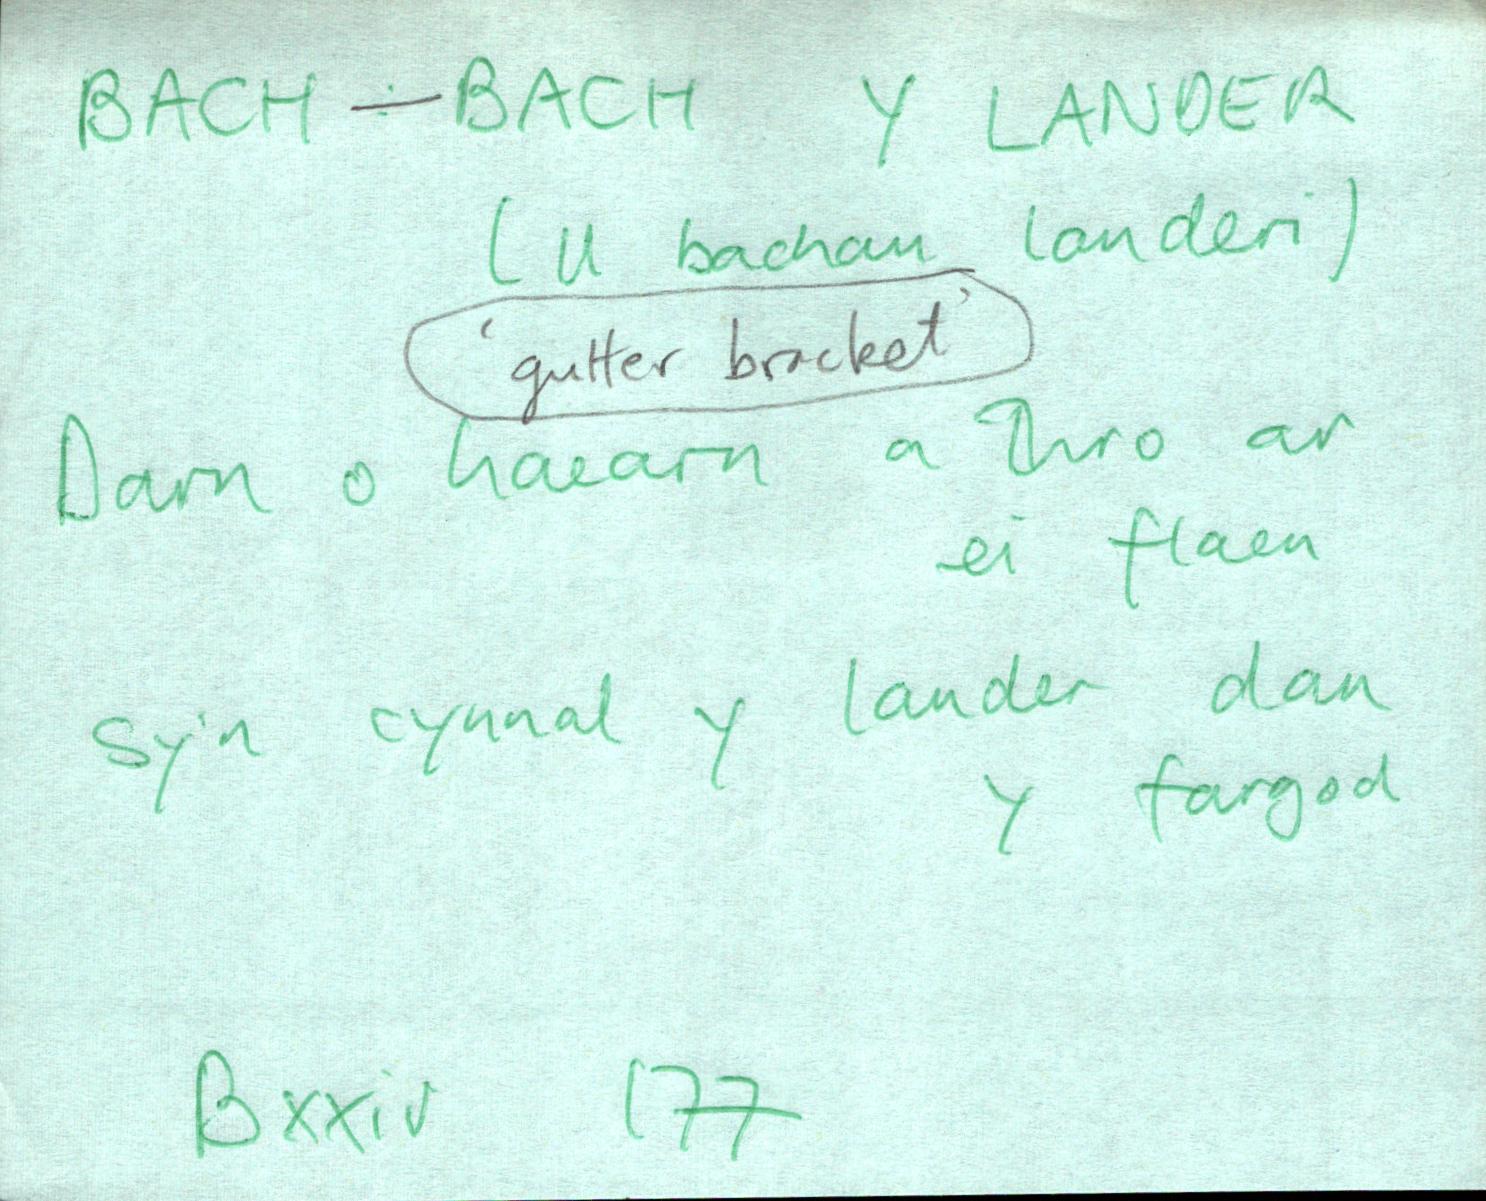 BACH — BACH Y LANDER
(ll bachau landeri)
'gutter bracket'
Darn o haearn a thro ar
ei flaen
sy'n cynnal y lander dan
y fargod
Bxxiv 177